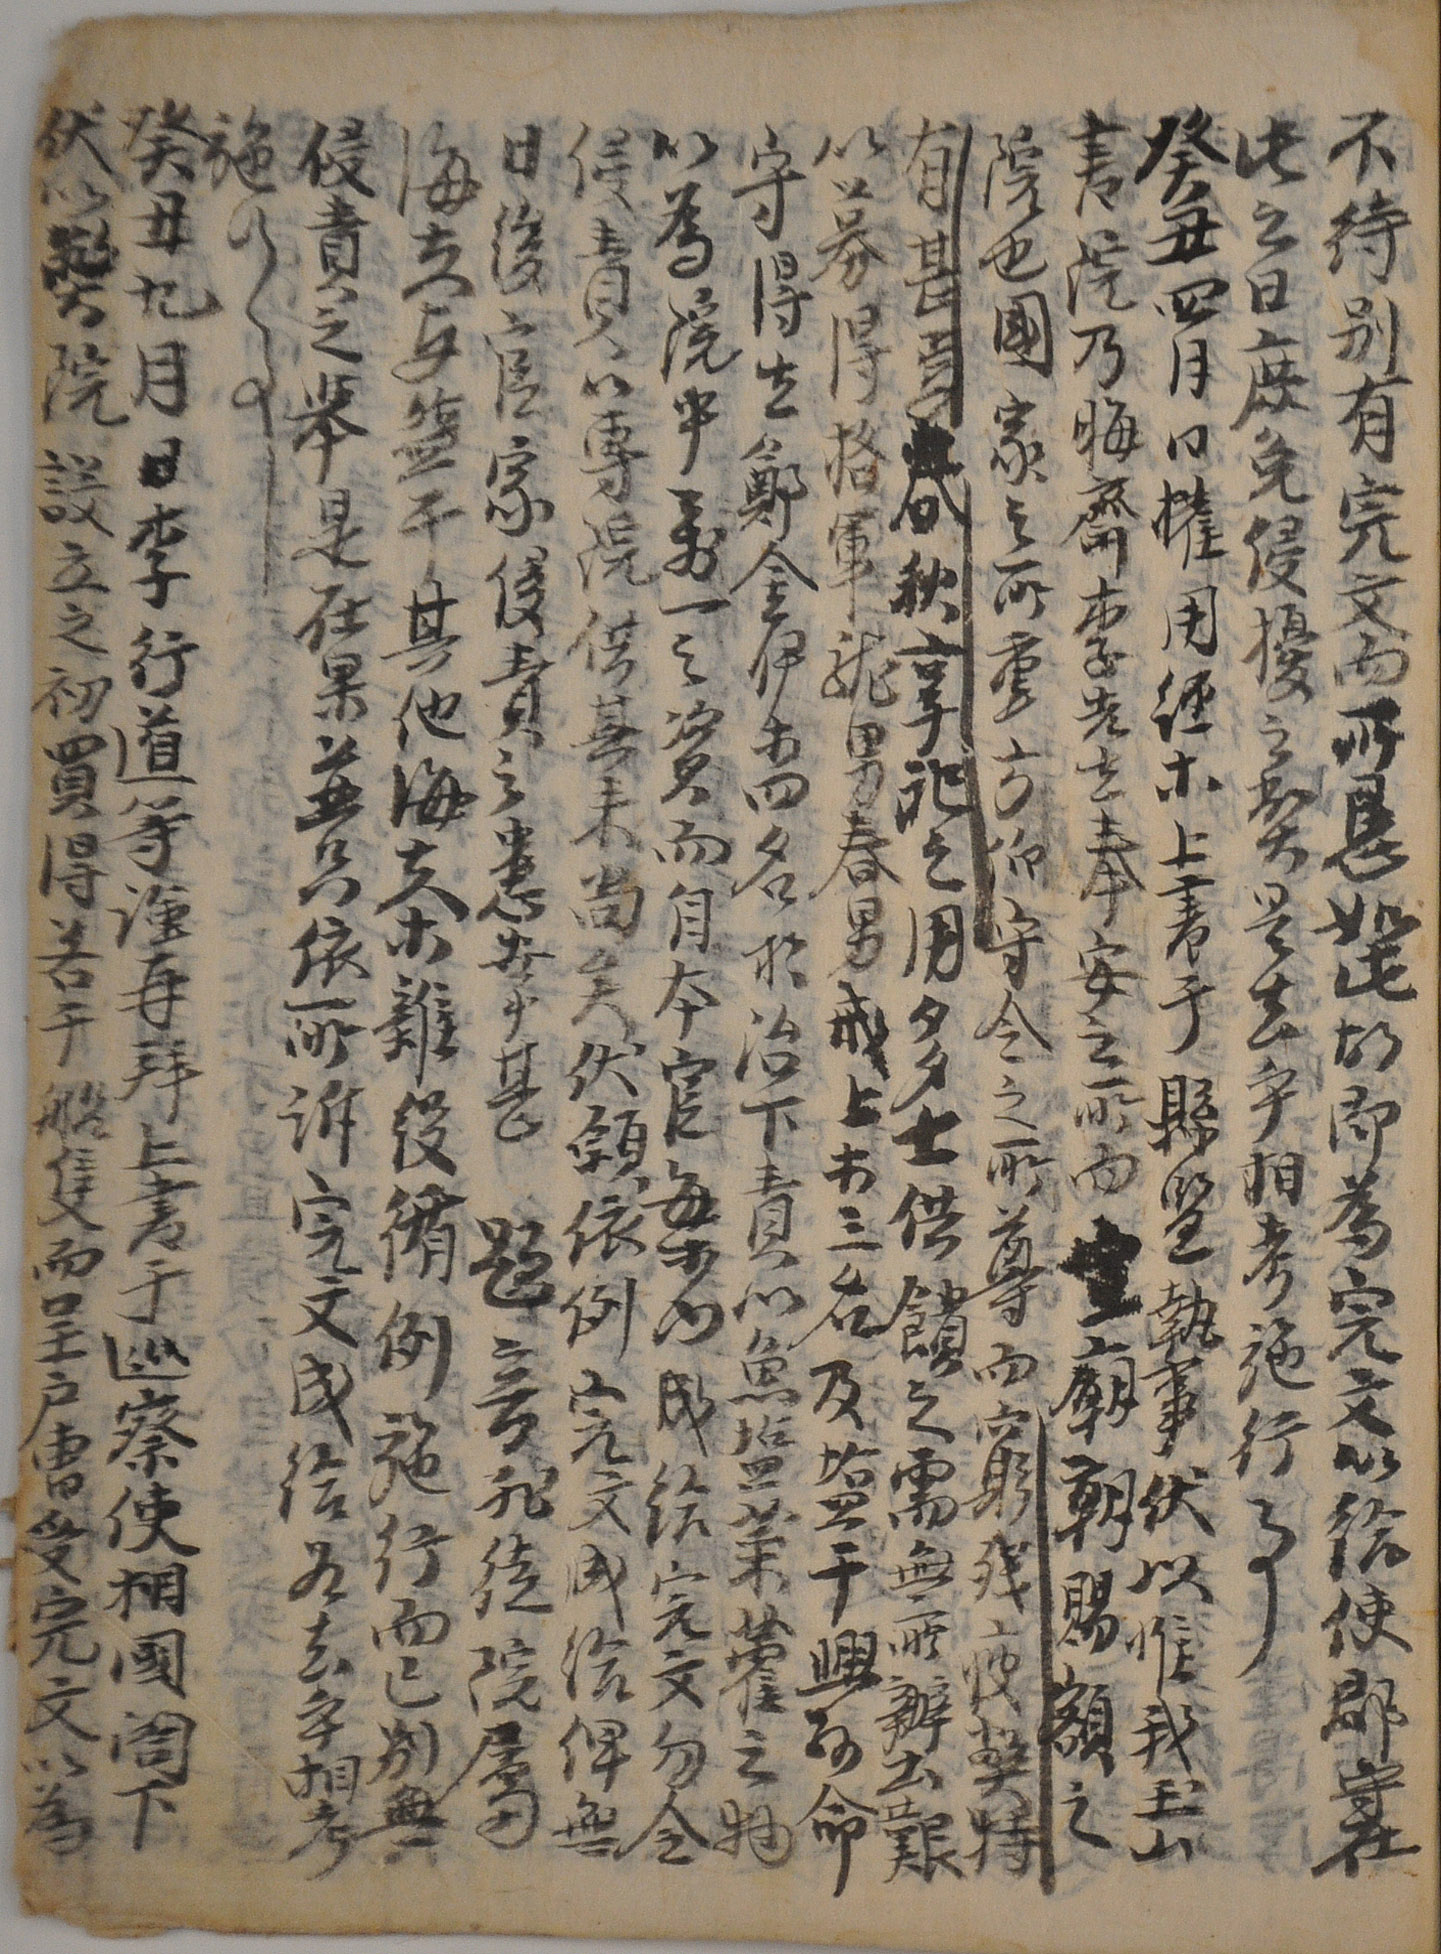 不待別有完文而所懇如此故卽爲完文以給使郡守在
此之日庶免侵擾之弊是去乎相考施行事
癸丑四月日權用經等上書于縣監執事伏以惟我玉山
書院乃晦齋李先生奉安之所而皇朝賜額之
院也國家之所重方伯守令之所尊而窮殘疲弊特
有甚焉春秋享祀之用多士供饋之需無所辦出艱
以募得格軍龍男春男戒上等三名及塩干興男命
守得生鄭金伊等四名於治下責以魚塩藿之物
以爲院中萬一之資而自本官每等內成給完文勿令
侵責以專院供其來尙矣伏願依例完文成給俾無
日後官家侵責之患幸甚 題音邪徒院屬
海夫與塩干其他海夫等雜役循例施行而已別無
侵責之擧是在果並只依所訴完文成給爲去乎相考
施行事
癸丑九月日李行道等謹再拜上書于巡察使相國閤下
伏以鄙院設立之初買得若干船隻而呈戶曹受完文以爲